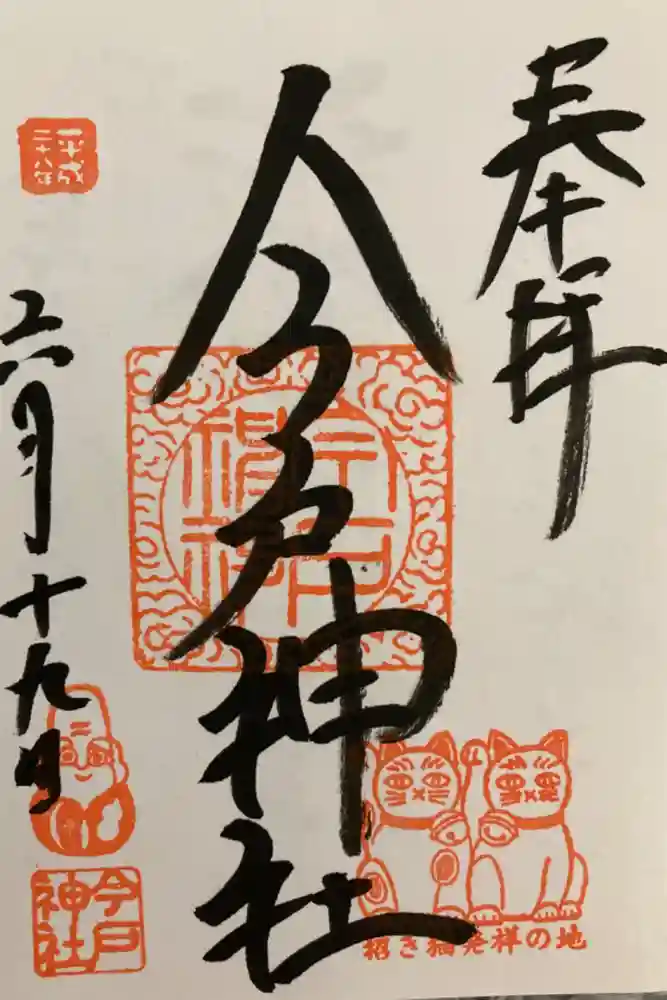 奉拝
今戸神社
平成
二十八年
六月十九日
今戸
神社
招き猫発祥の地